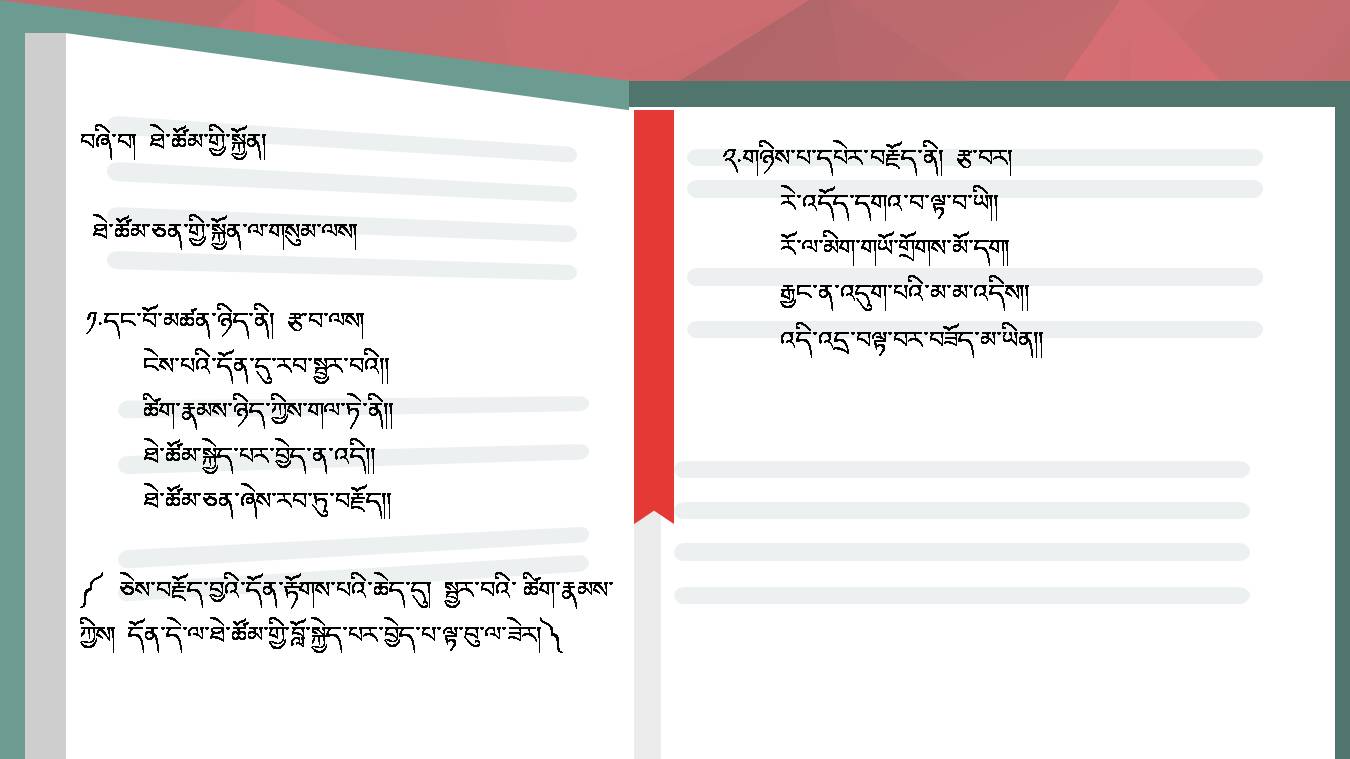 བཞི་བ།  ཐེ་ཚོམ་གྱི་སྐྱོན།
ཐེ་ཚོམ་ཅན་གྱི་སྐྱོན་ལ་གསུམ་ལས།
༡.དང་བོ་མཚན་ཉིད་ནི།  རྩ་བ་ལས།
ངེས་པའི་དོན་དུ་རབ་སྦྱར་བའི།།
ཚིག་རྣམས་ཉིད་ཀྱིས་གལ་ཏེ་ནི།།
ཐེ་ཚོམ་སྐྱེད་པར་བྱེད་ན་འདི།།
ཐེ་ཚོམ་ཅན་ཞེས་རབ་ཏུ་བརྗོད།།
༼  ཅེས་བརྗོད་བྱའི་དོན་རྟོགས་པའི་ཆེད་དུ།  སྦྱར་བའི་ ཚིག་རྣམས་
ཀྱིས།  དོན་དེ་ལ་ཐེ་ཚོམ་གྱི་བློ་སྐྱེད་པར་བྱེད་པ་ལྟ་བུ་ལ་ཟེར།༽
༢.གཉིས་པ་དཔེར་བརྗོད་ནི།  རྩ་བར།
རེ་འདོད་དགའ་བ་ལྟ་བ་ཡི།།
རོ་ལ་མིག་གཡོ་གྲོགས་མོ་དག།
རྒྱང་ན་འདུག་པའི་མ་མ་འདིས།།
འདི་འདྲ་བལྟ་བར་བཟོད་མ་ཡིན།།